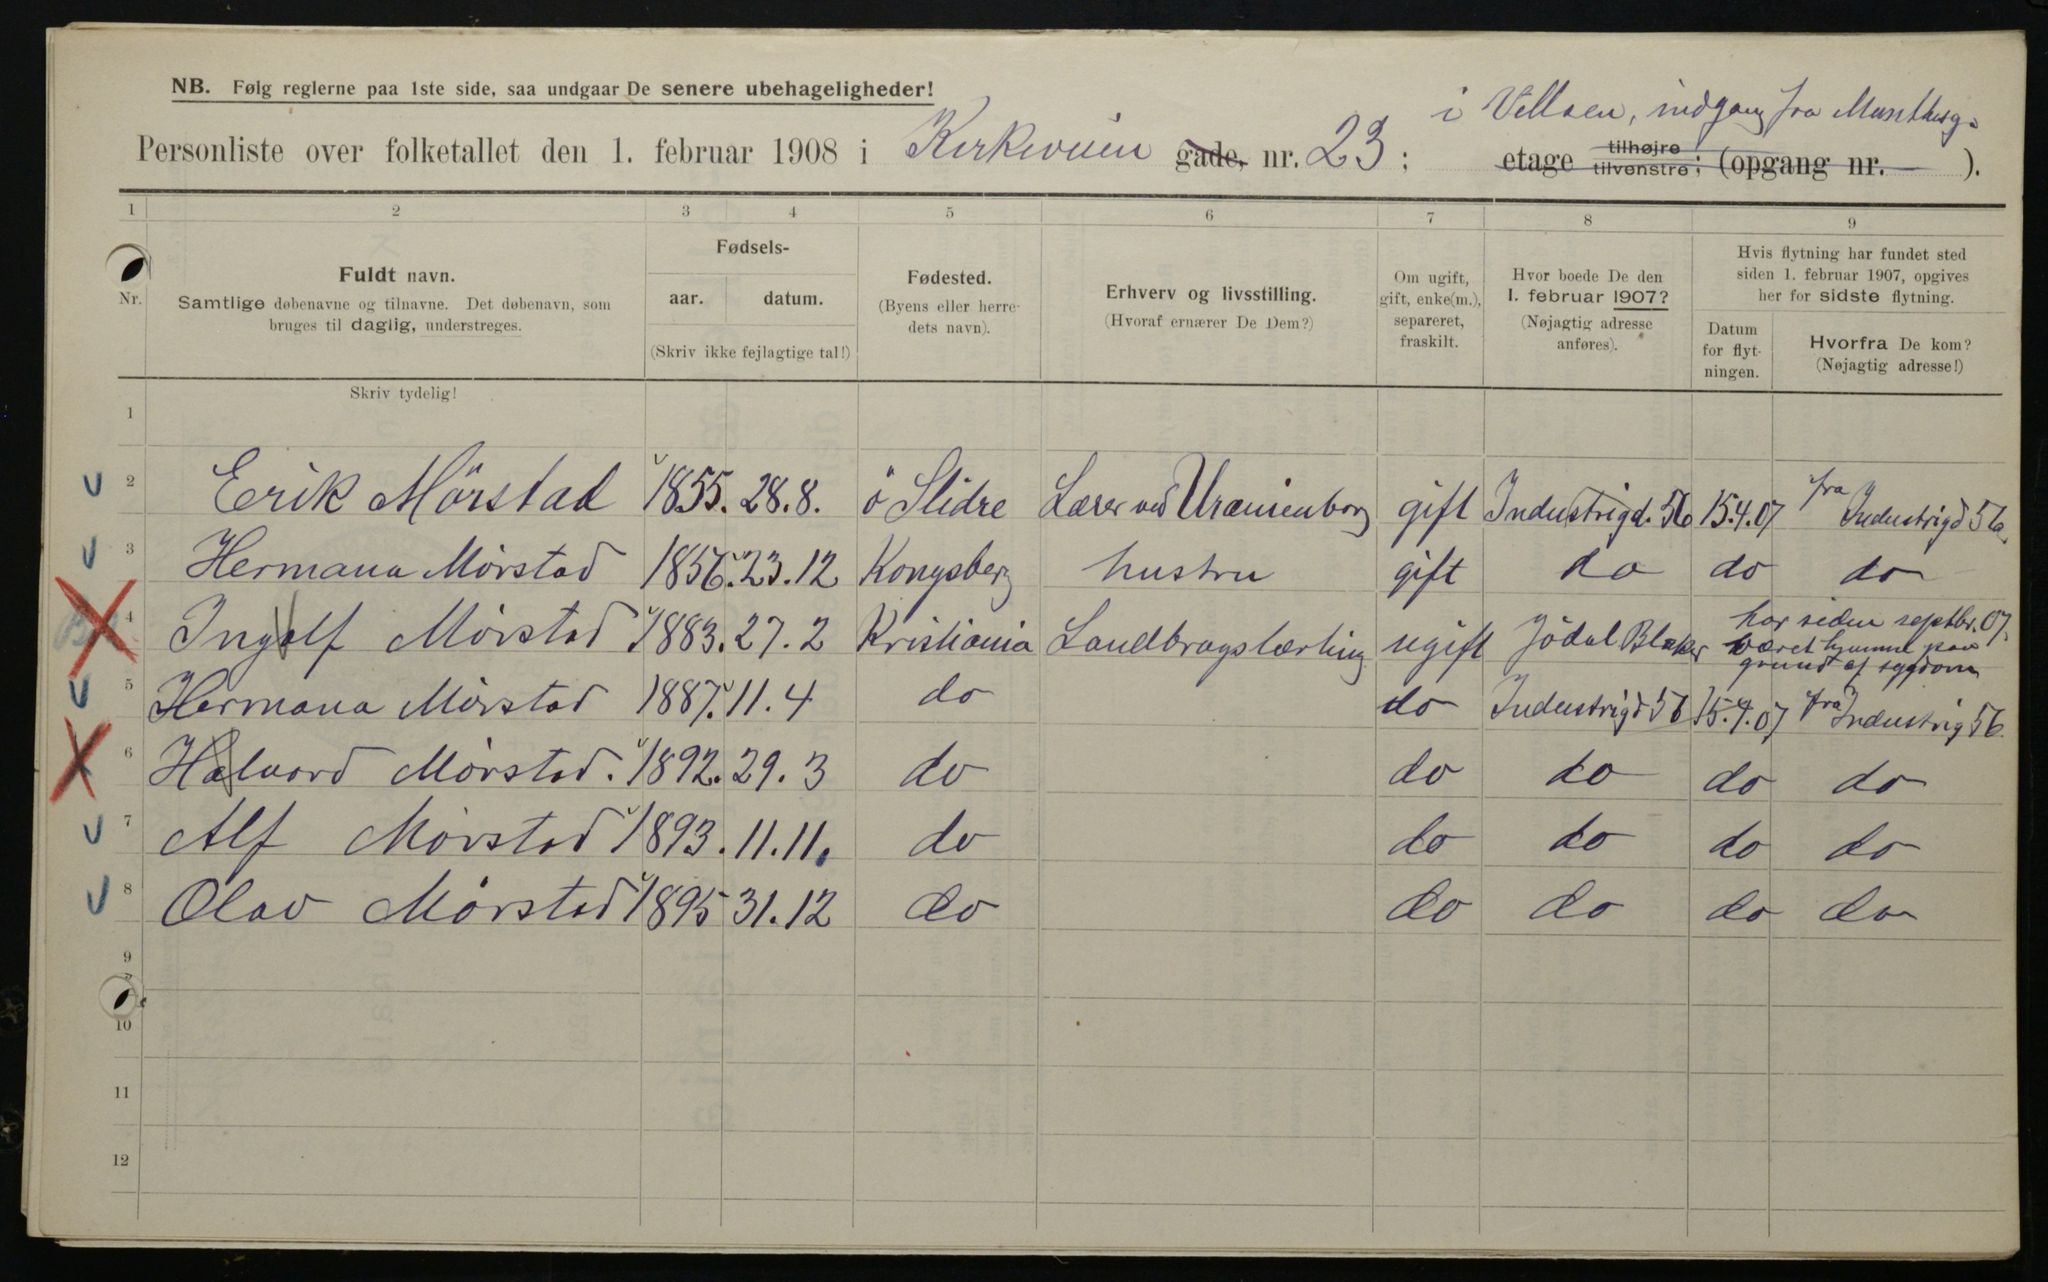 NB. Følg reglerne paa 1ste side, saa undgaar De senere ubehageligheder!
i Villaen, indgang fra Munthesg.
Personliste over folketallet den 1. februar 1908 i Kirkeveien gade, nr. 23; etage tilhøjre tilvenstre; (opgang nr. ).
1 2 3 4 5 6 7 8 9
Nr.
Fuldt navn.
Samtlige døbenavne og tilnavne. Det døbenavn, som
bruges til daglig, understreges.
Fødsels-
aar. datum.
(Skriv ikke fejlagtige tal!)
Fødested.
(Byens eller herre-
dets navn).
Erhverv og livsstilling.
(Hvoraf ernærer De Dem?)
Om ugift,
gift, enke(m.),
separeret,
fraskilt.
Hvor boede De den
1. februar 1907?
(Nøjagtig adresse
anføres).
Hvis flytning har fundet sted
siden 1. februar 1907, opgives
her for sidste flytning.
Datum
for flyt-
ningen.
Hvorfra De kom?
(Nøjagtig adresse!)
Skriv tydelig!
1
2 Erik Mörstad 1855. 28.8. ö Slidre Lærer ved Uranienborg gift Industrigd. 56 15.4.07 fra Industrigd 56
3 Hermana Mörstad 1856. 23.12 Kongsberg hustru gift do do do
4 Ingolf Mörstad 1883. 27.2 Kristiania Landbrugslærling ugift Jödal Blaker har siden septbr. 07.
været hjemme paa
grund af sygdom
5 Hermana Mörstad 1887. 11.4 do do Industrigd 56 15.4.07 fra Industrig 56
6 Halvard Mörstad. 1892. 29.3 do do do do do
7 Alf Mörstad 1893. 11.11. do do do do do
8 Olav Mörstad 1895 31.12 do do do do do
9
10
11
12